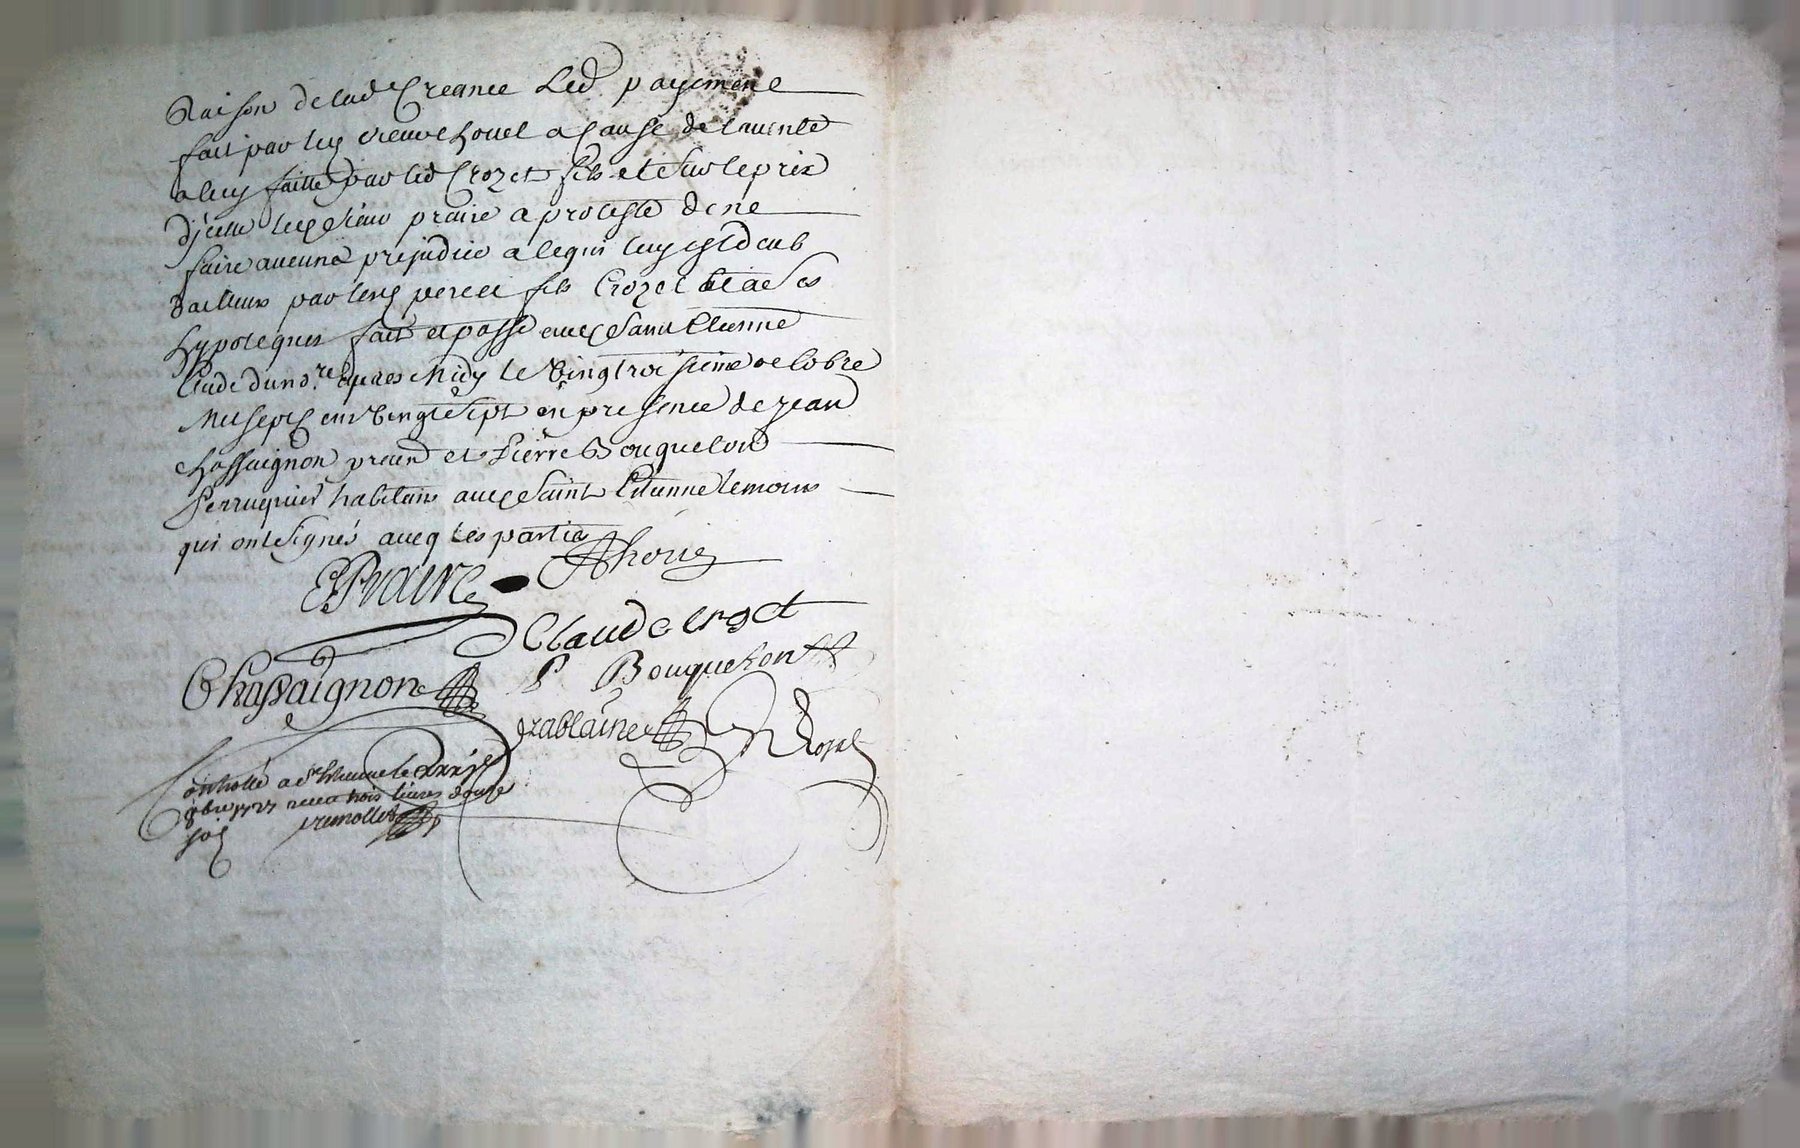 Raison de lad Creance Led payement
fait par led sieur hovel a Cause de la vente
a luy faitte par led Crozet fils et sur le prix
d'jcelle led sieur praire a proteste de ne
faire aucune prejudice a le qui luy est deub
dailleurs par lesd pere et fils Crozet et a ses
hypoteques fait et passé aud Saint Etienne
Etude du no.re apres Midy le Vingtroisieme octobre
Mil sept cens Vingt sept en presence de jean
Chassaignon praud et Pierre Bouqueton
Perruquier habitans aud Saint Etienne temoins
qui ont signés avecq les parties
Praire
Claude crozet
Chassaignon
P Bouqueton
controllé a St Etienne le
8bre 1727 receu trois livres douze
sols